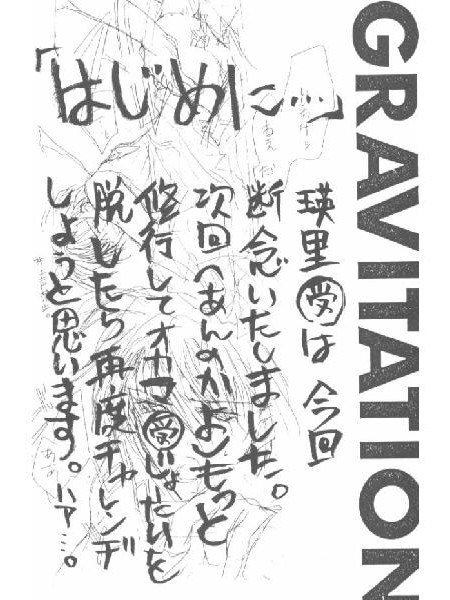 GRAVITATION
「はじめに…」
瑛里㊙は 今回
断念いたしました。
次回へあんのかよもっと
修行してオカマ受じょたいを
脱したら再度チャレンジ
しようと思います。ハァ…。